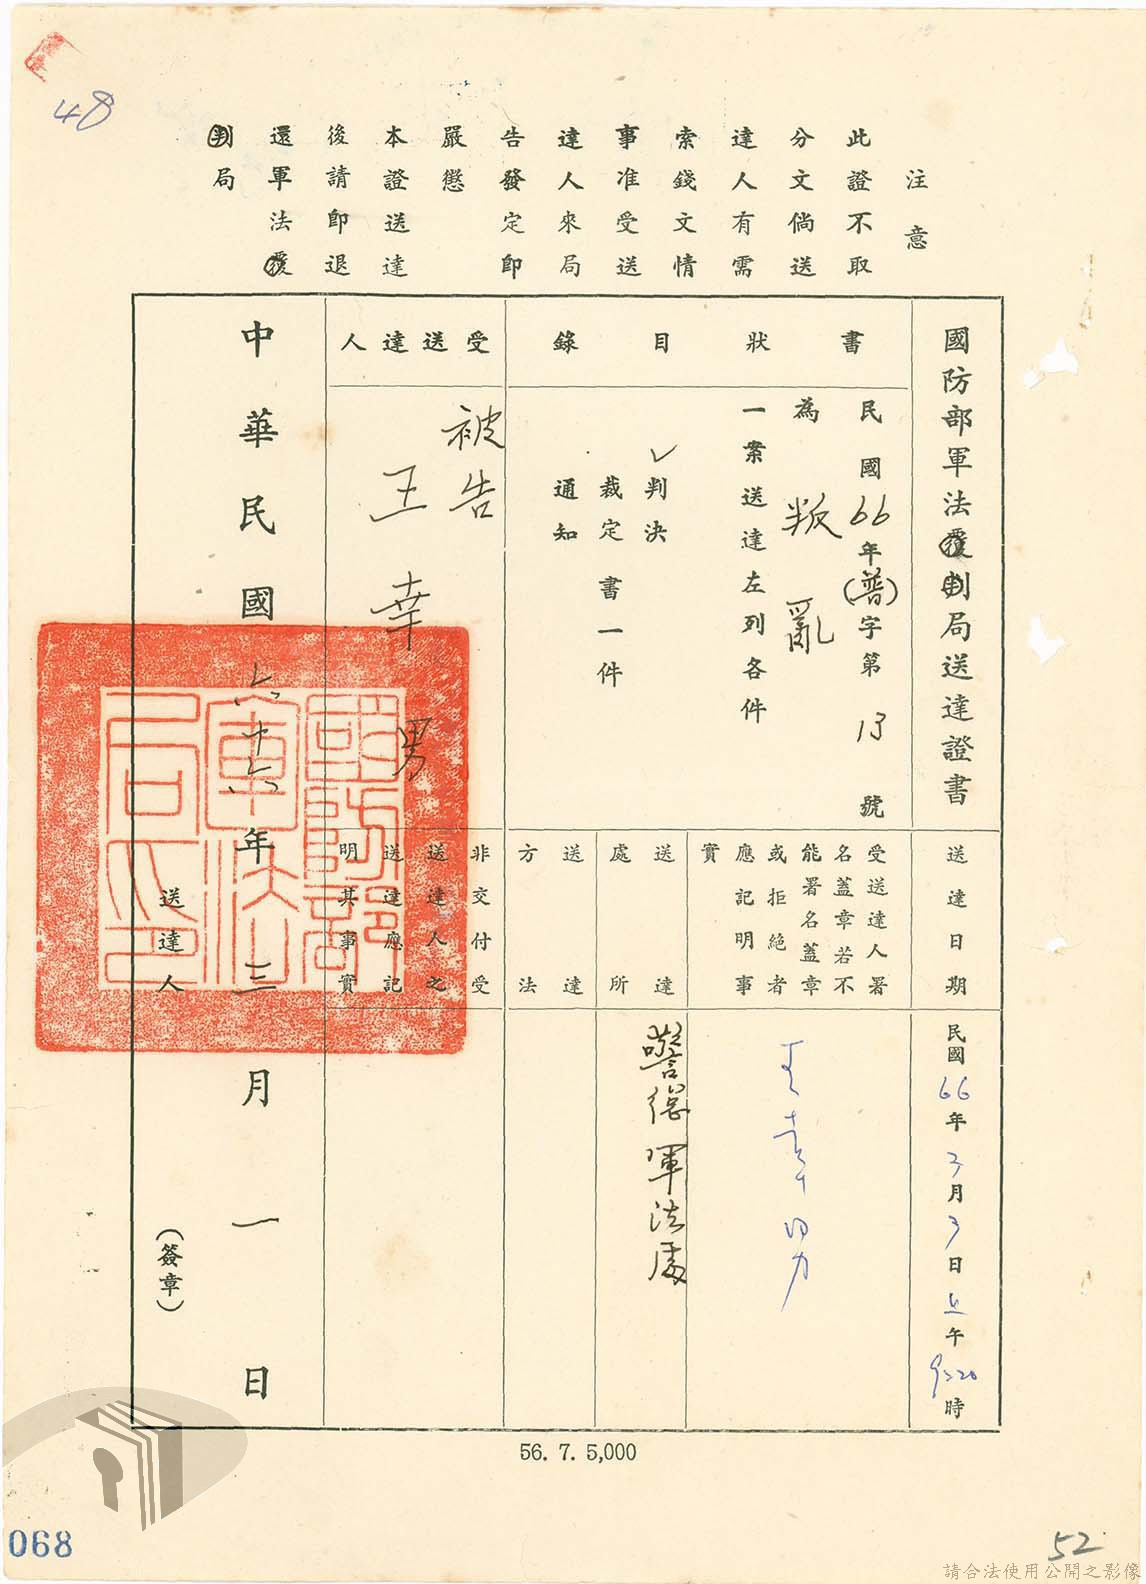 48
注意
此證不取
分文倘送
達人有需
索錢文情
事准受送
達人來局
告發定即
嚴懲
本證送達
後請即退
還軍法覆
判局
國防部軍法覆判局送達證書
書狀目錄
民國66年(普)字第13號
為叛亂
一案送達左列各件
✓判決
裁定書一件
通知
受送達人
被告
王幸男
送達日期
民國66年3月3日上午9:20時
受送達人署
名蓋章若不
能署名蓋章
或拒絕者
應記明事
實
王幸男
送達
處所
警總軍法處
送達
方法
非交付受
送達人之
送達應記
明其事實
中華民國六十六年三月一日
送達人
(簽章)
國防部軍法局印
56. 7. 5,000
068
52
請合法使用公開之影像